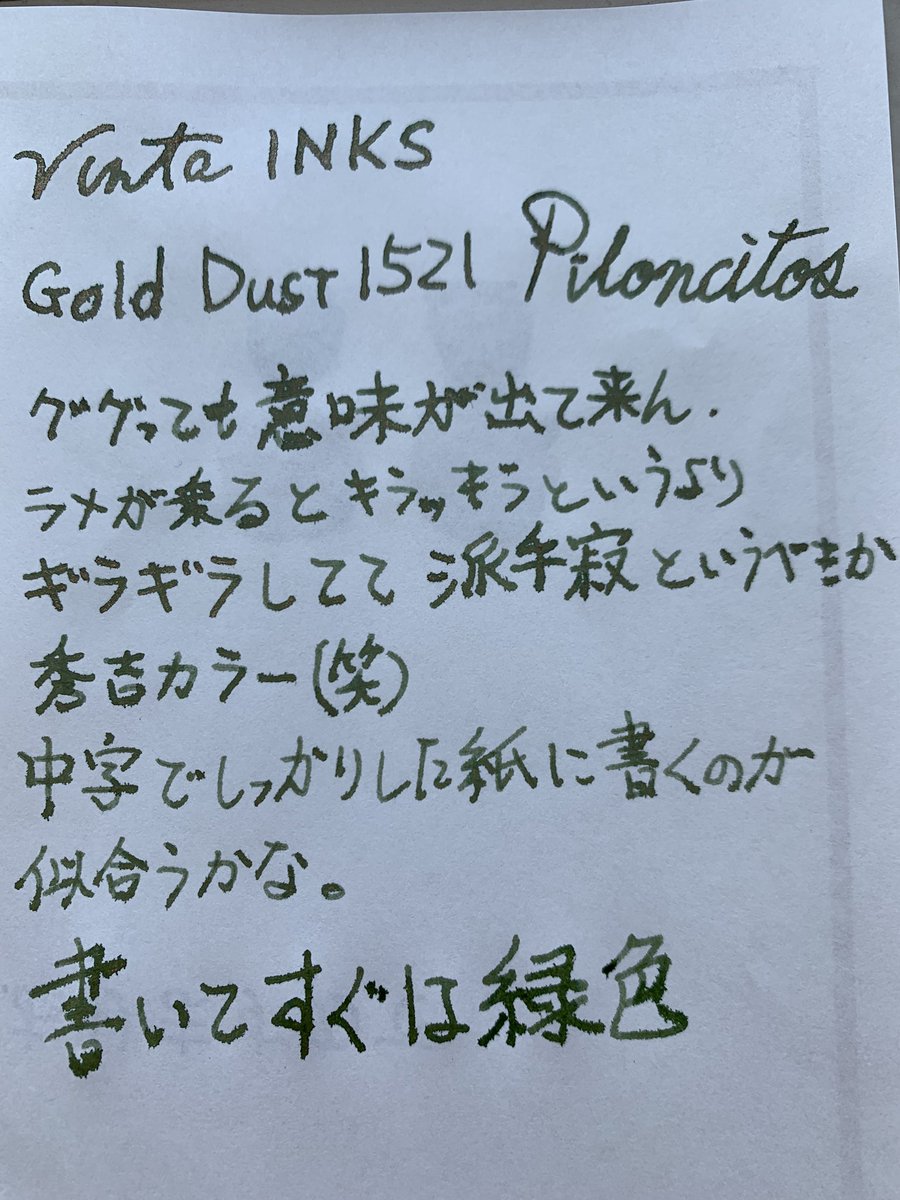 Vinta INKS
Gold Dust 1521 Piloncitos
グゲっても意味が出て来ん.
ラメが乗るとキラッギラというより
ギラギラしてて 派手寂というべきか
秀吉カラー(笑)
中字でしっかりした紙に書くのが
似合うかな。
書いてすぐは緑色